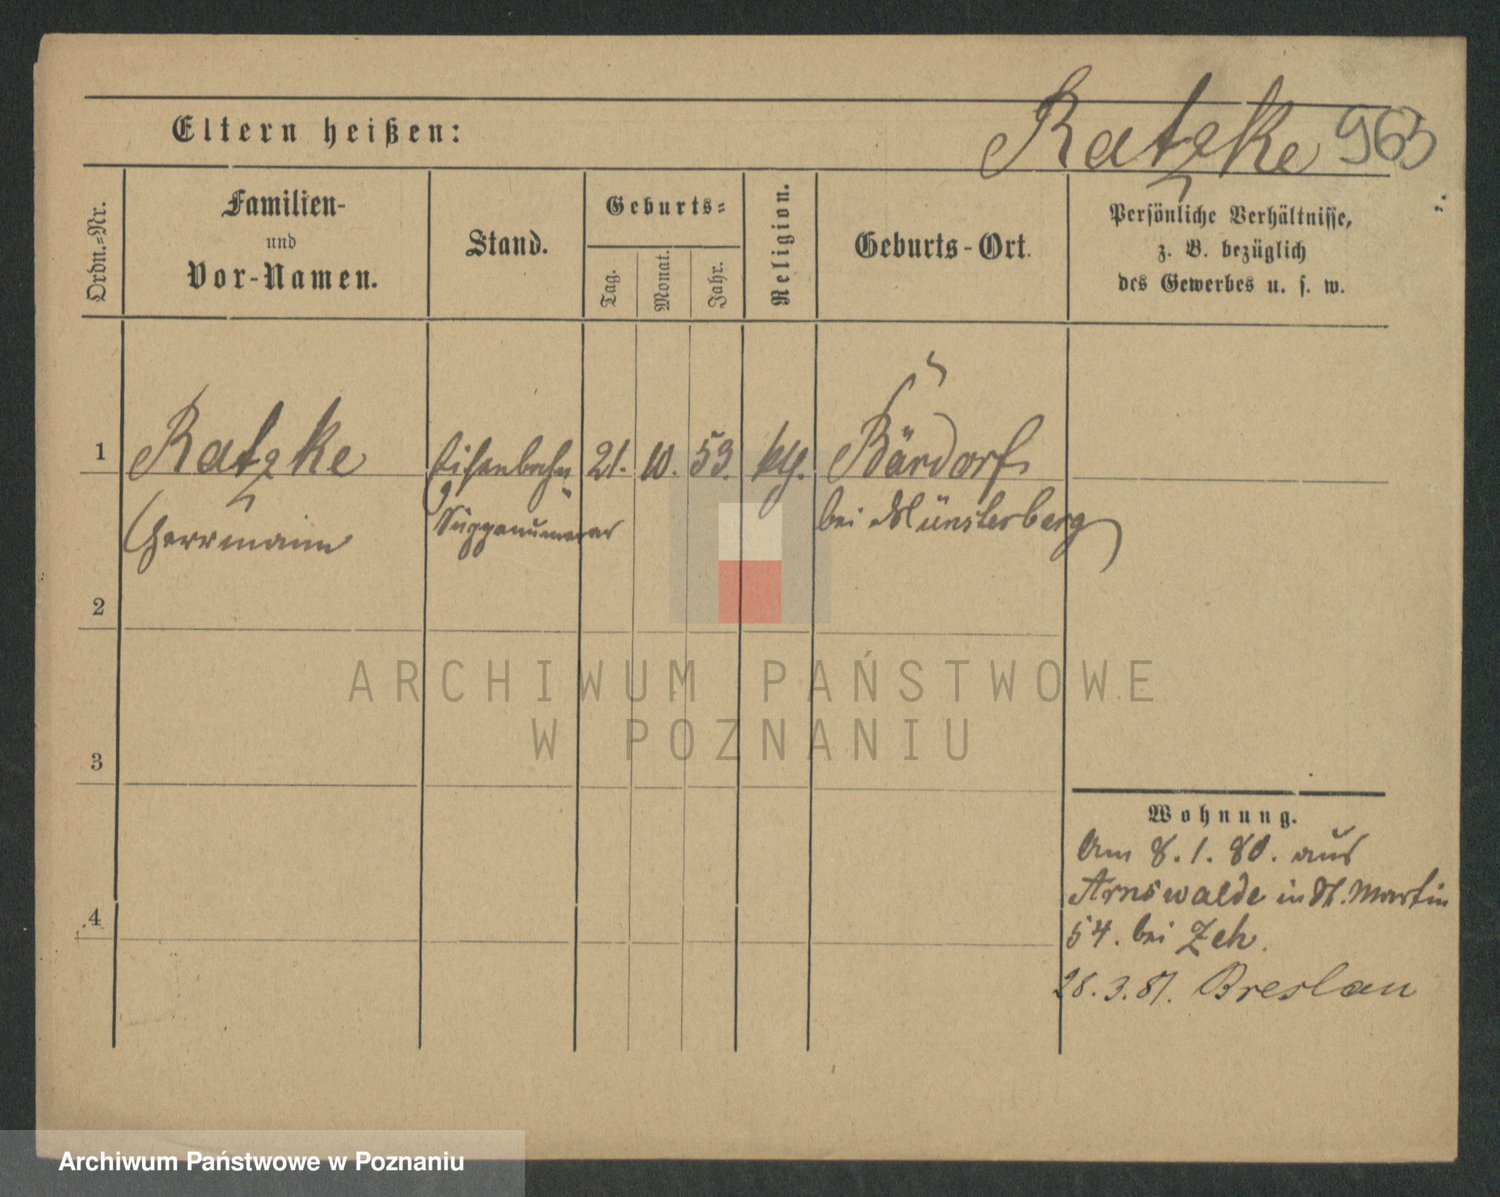 Ratzke 963
Eltern heißen:
Ordn.-Nr.
Familien-
und
Vor-Namen.
Stand.
Geburts-
Tag.
Monat.
Jahr.
Religion.
Geburts-Ort.
Persönliche Verhältnisse,
z. B. bezüglich
des Gewerbes u. s. w.
1
Ratzke
Herrmann
Eisenbahn
Suppenumerar
21. 10. 53. kth.
Bärdorf
bei Münsterberg
2
3
4
Wohnung.
Am 8.1.80. aus
Arnswalde in St. Martin
54. bei Zeh.
28.3.81. Breslau
ARCHIWUM PAŃSTWOWE
W POZNANIU
Archiwum Państwowe w Poznaniu